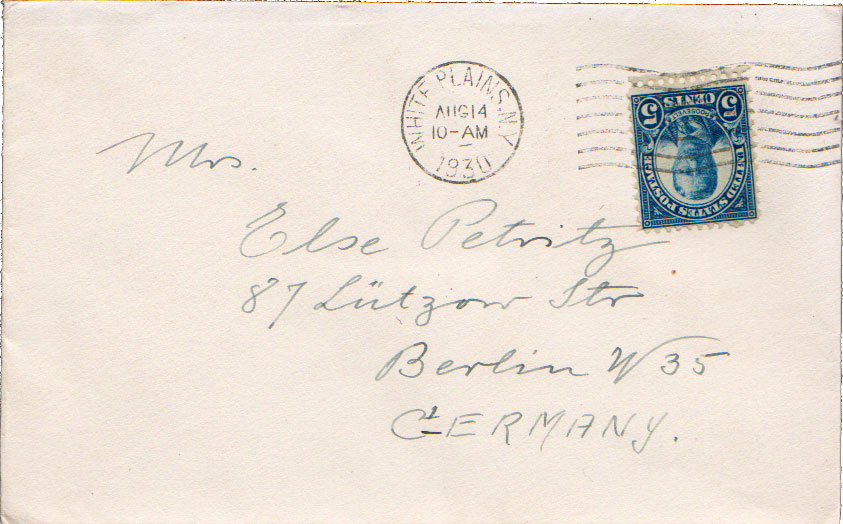 WHITE PLAINS, N.Y.
AUG 14
10-AM
1930
5 CENTS 5
ROOSEVELT
UNITED STATES POSTAGE
Mrs.
Else Petritz
87 Lützow Str
Berlin W 35
GERMANY.